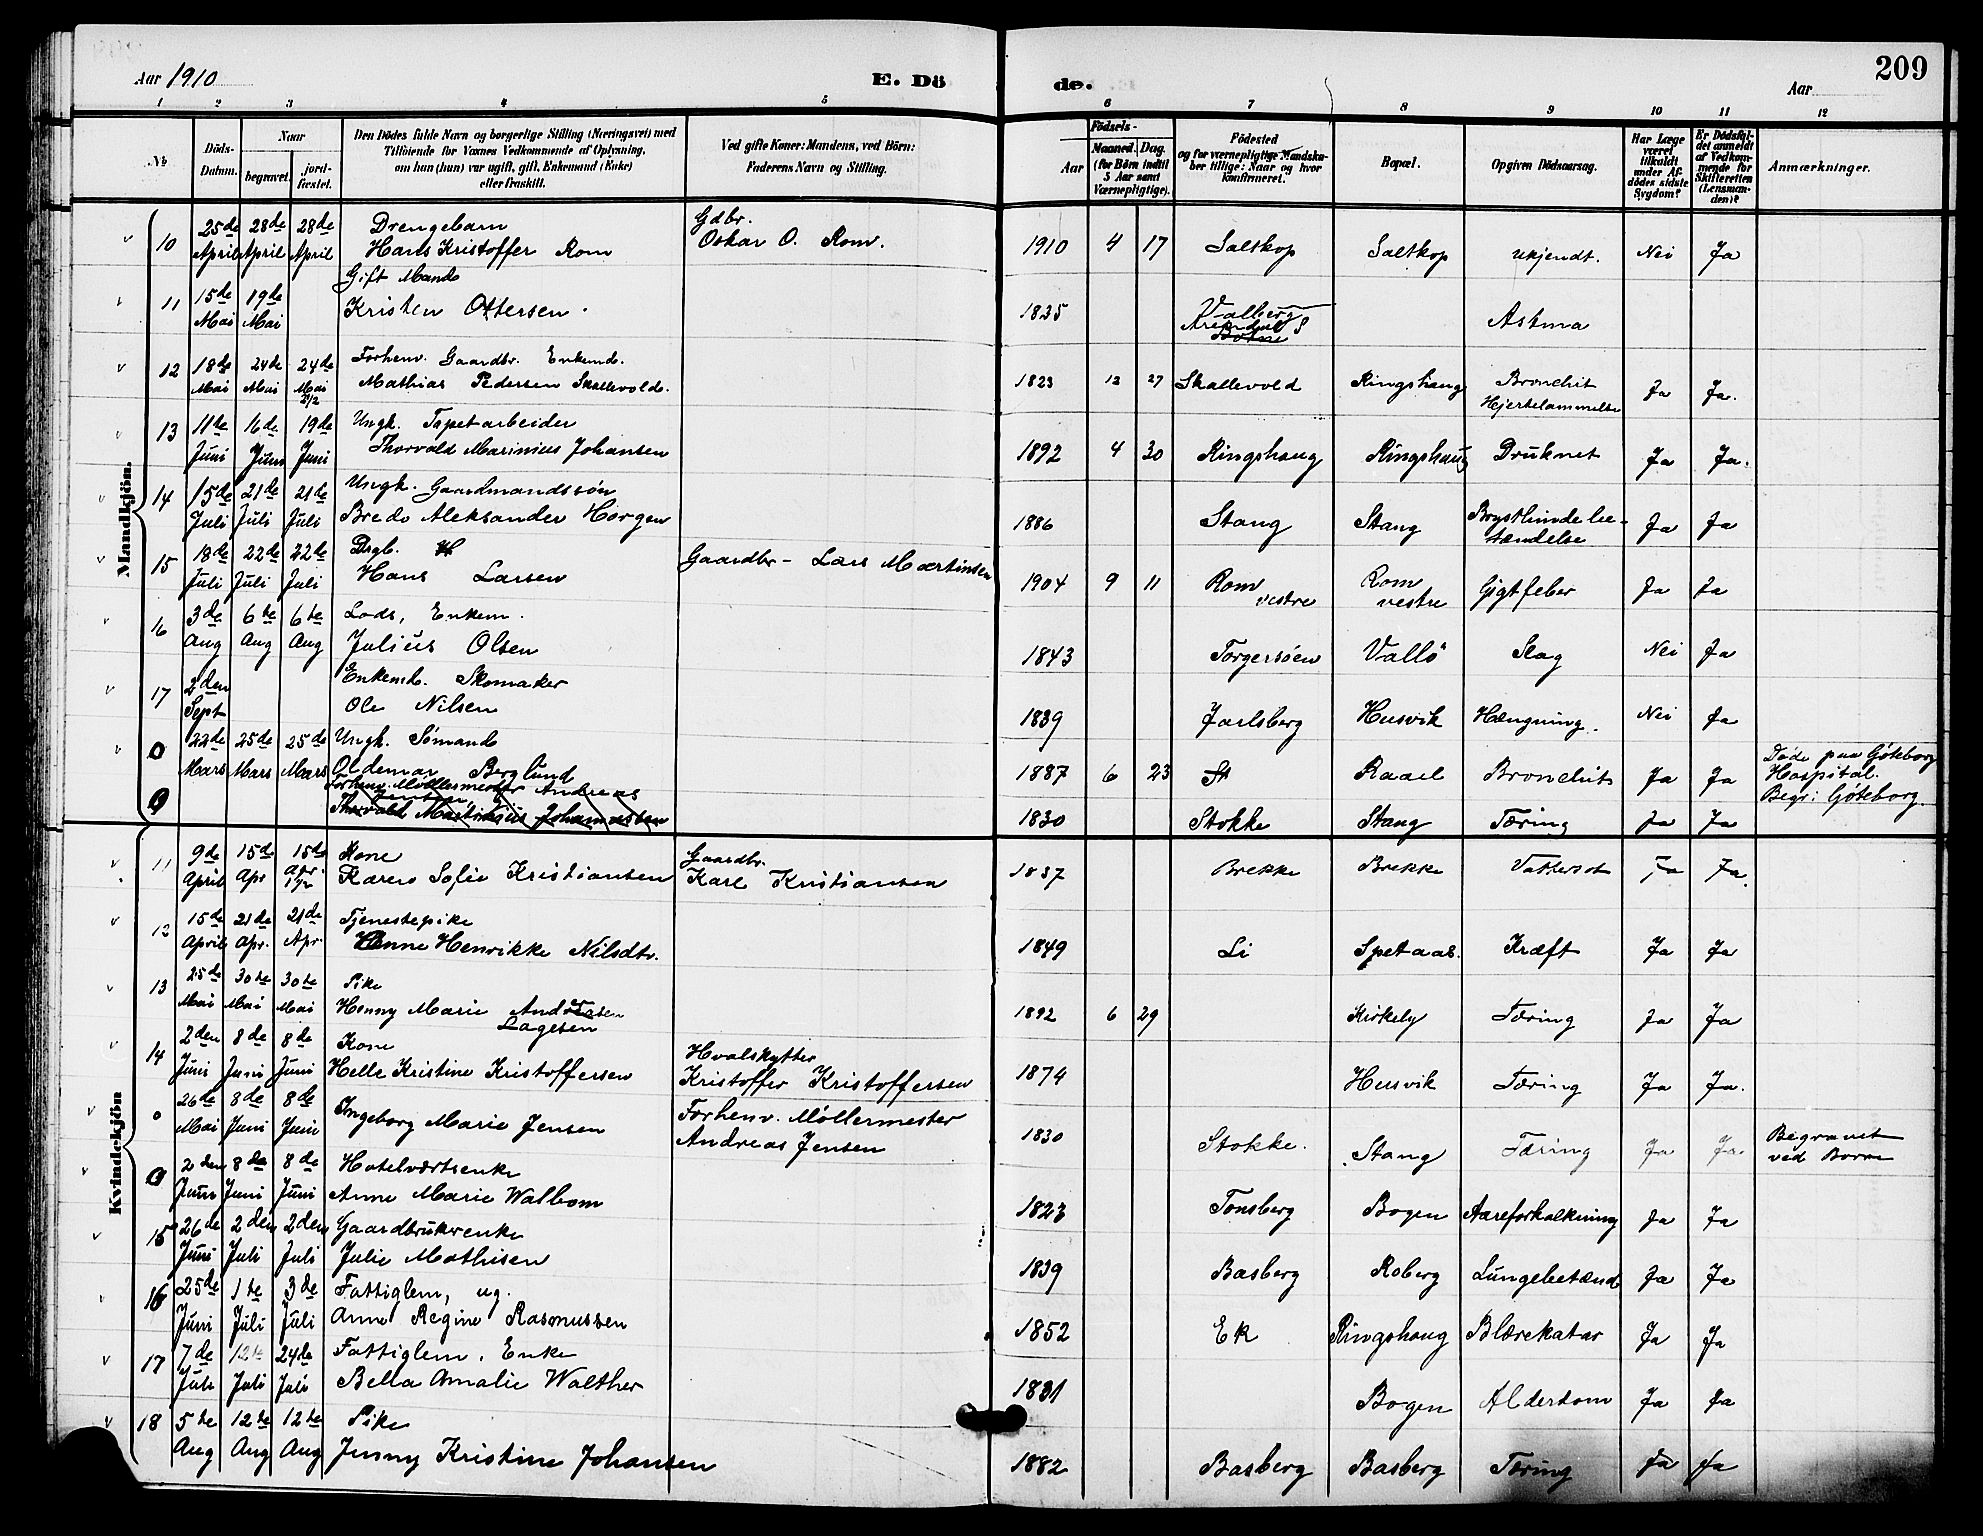 Aar 1910
E. Döde.
Aar
209
1 2 3 4 5 6 7 8 9 10 11 12
No
Döds-Datum.
Naar
begravet.
jordfæstet.
Den Dödes fulde Navn og borgerlige Stilling (Næringsvei) med
Tilföiende for Voxnes Vedkommende af Oplysning,
om han (hun) var ugift, gift, Enkemand (Enke)
eller fraskilt.
Ved gifte Koner: Mandens, ved Börn:
Faderens Navn og Stilling.
Födsels-
Aar
Maaned. Dag.
(for Börn indtil
5 Aar samt
Værnepligtige).
Födested
og for værnepligtige Mandska-
ber tillige: Naar og hvor
konfirmeret.
Bopæl.
Opgiven Dödsaarsag.
Har Læge
været
tilkaldt
under Af-
dödes sidste
Sygdom?
Er Dödsfal-
det anmeldt
af Vedkom-
mende for
Skifteretten
(Lensman-
den)?
Anmærkninger.
Mandkjön.
10 25de April 28de April 28de April Drengebarn Hans Kristoffer Rom Gdbr. Oskar O. Rom. 1910 4 17 Saltkop Saltkop ukjendt. Nei Ja
11 15de Mai 19de Mai Gift Mand Kristen Ottersen. 1835 Astma
12 18de Mai 24de Mai 24de Mai Forhenv. Gaardbr. Enkemd. Mathias Pedersen Skallevold. 1823 12 27 Skallevold Ringshaug Bronchit Hjertelammelse Ja Ja.
13 11te Juni 16de Juni 19de Juni Ungk. Tapetarbeider Thorvald Marinius Johansen 1892 4 30 Ringshaug Ringshaug Druknet Ja Ja.
14 15de Juli 21de Juli 21de Juli Ungk. Gaardmandssøn Bredo Aleksander Horgen 1886 Stang Stang Brysthindebe-tændelse Ja Ja
15 18de Juli 22de Juli 22de Juli Drgb. Hans Larsen Gaardbr - Lars Martinsen 1904 9 11 Rom vestre Rom vestre Gigtfeber Ja Ja
16 3de Aug 6te Aug 6te Aug Lods, Enkem. Julius Olsen 1843 Torgersøen Vallö Slag Nei Ja
17 2den Sept Enkemd. Skomaker Ole Nilsen 1839 Jarlsberg Husvik Hængning. Nei Ja
0 22de Mars 25de Mars 25de Mars Ungk. Sømand Oldemar Berglund 1887 6 23 St Raael Bronchit Ja Ja Døde paa Göteborg Hospital. Begr: Göteborg.
0 Forhenv. Møllermester Andreas Jensen, Thorvald Martinius Johannessen 1830 Stokke Stang Tæring Ja Ja
Kvindekjön
11 9de April 15de Apr 15de Apr Kone Karen Sofie Kristiansen Gaardbr. Karl Kristiansen 1837 Brekke Brekke Vattersot Ja Ja.
12 15de April 21de Apr. 21de Apr. Tjenestepike Anne Henrikke Nilsdtr. 1849 Li Spetaas. Kræft Ja Ja
13 25de Mai 30te Mai 30te Mai Pike Henny Marie Andersen Lagesen 1892 6 29 Kirkely Tæring Ja Ja
14 2den Juni 8de Juni 8de Juni Kone Helle Kristine Kristoffersen Hvalskytter Kristoffer Kristoffersen 1874 Husvik Tæring Ja Ja.
0 26de Mai 8de Juni 8de Juni Ingeborg Marie Jensen Forhenv. Møllermester Andreas Jensen 1830 Stokke. Stang Tæring Ja Ja. Begravet ved Borre
0 2den Juni 8de Juni 8de Juni Hotelværtsenke Anne Marie Walbom 1823 Tønsberg Bogen Aareforkalkning Ja Ja
15 26de Juni 2den Juli 2den Juli Gaardbrukrenke Julie Mathisen 1839 Basberg Roberg Lungebetænd Ja Ja
16 25de Juni 1te Juli 3de Juli Fattiglem, ug. Anne Regine Rasmussen 1852 Ek Ringshaug Blærekatar Ja Ja
17 7de Juli 12te Juli 24de Juli Fattiglem. Enke Bella Amalie Walther 1831 Bogen Alderdom Ja Ja
18 5te Aug 12te Aug 12te Aug Pike Jenny Kristine Johansen 1882 Basberg Basberg Tæring Ja Ja